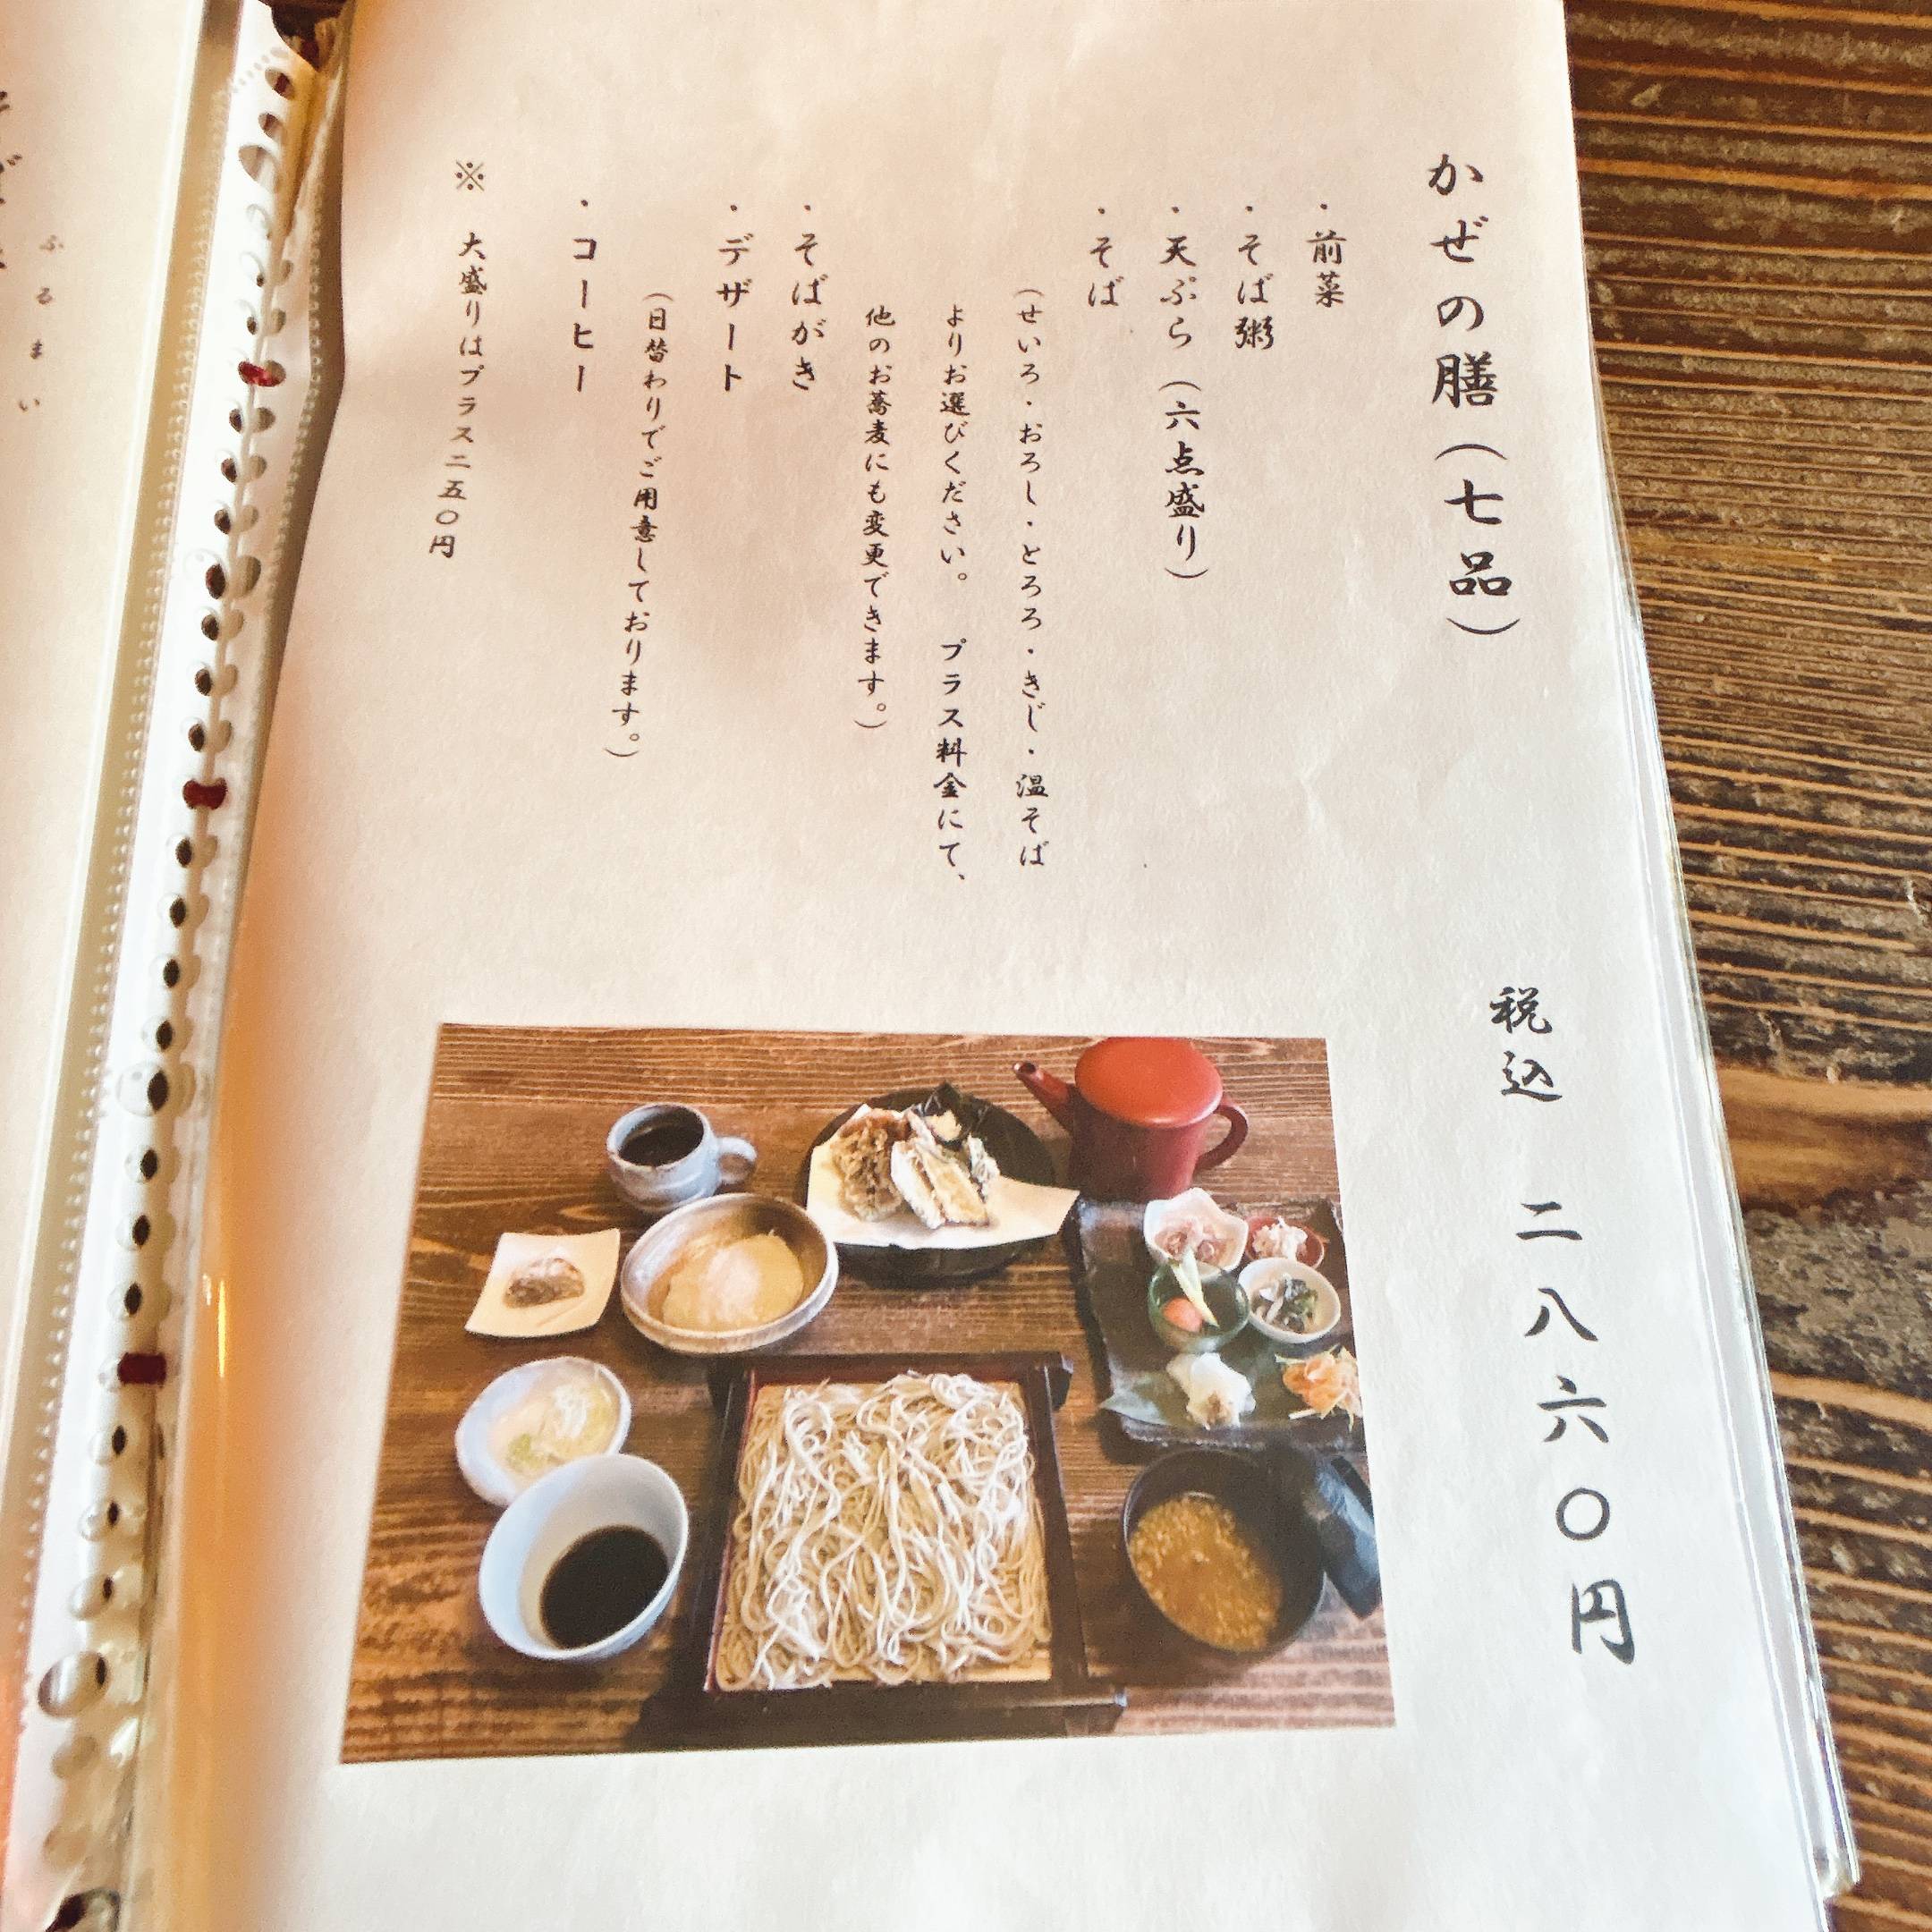 かぜの膳（七品）
税込 二八六〇円
・前菜
・そば粥
・天ぷら（六点盛り）
・そば
（せいろ・おろし・とろろ・きじ・温そば
よりお選びください。 プラス料金にて、
他のお蕎麦にも変更できます。）
・そばがき
・デザート
（日替わりでご用意しております。）
・コーヒー
※ 大盛りはプラス二五〇円
ふるまい